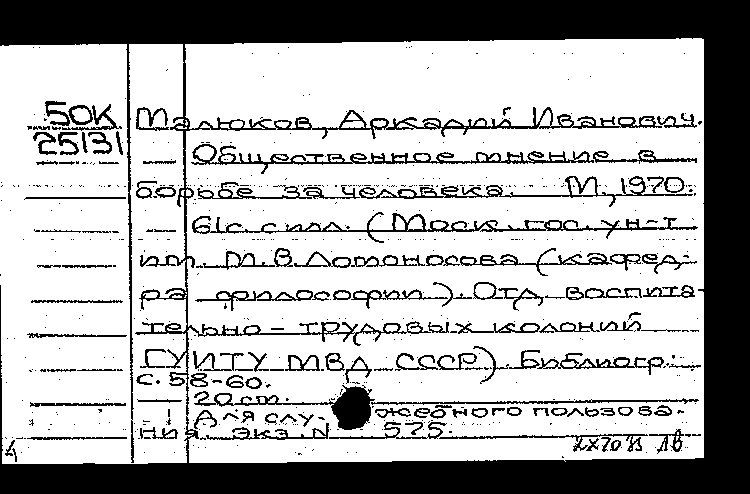 50К
25131
Малюков, Аркадий Иванович.
Общественное мнение в
борьбе за человека. М., 1970.
61с. с илл. (Моск. гос. ун-т
им. М.В. Ломоносова (кафед-
ра философии). Отд. воспита-
тельно-трудовых колоний
ГУИТУ МВД СССР). Библиогр.:
с. 58-60.
20 cm.
! Для служебного пользова-
ния. экз. N 575.